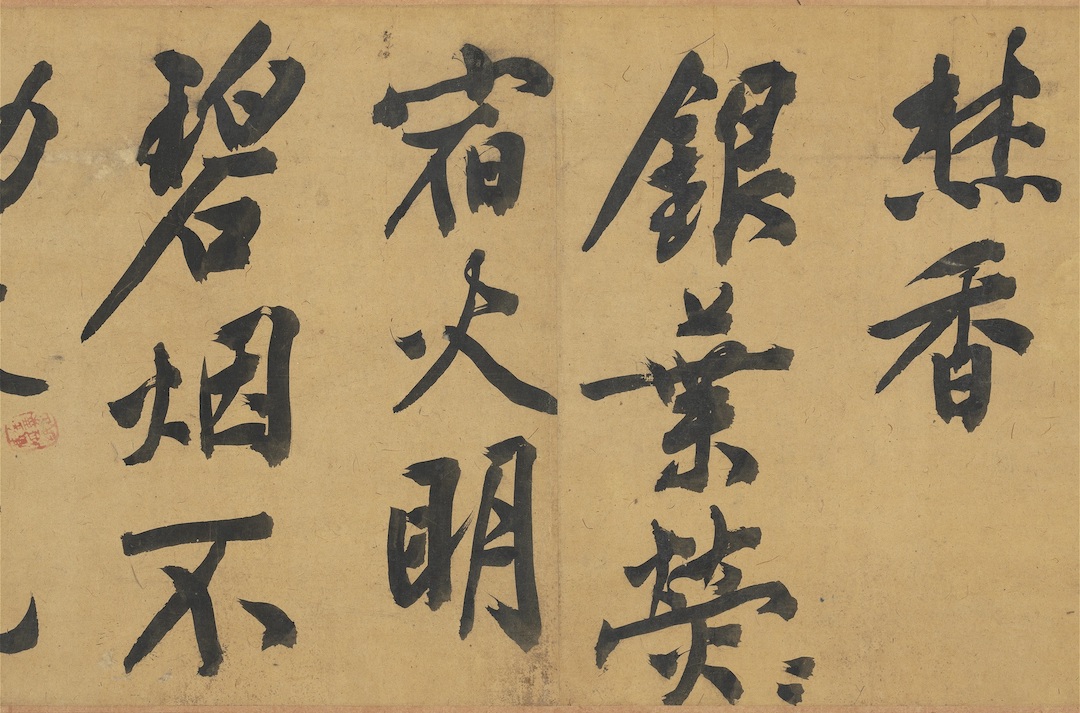 焚香
銀葉熒〻
宿火明
碧烟不
動